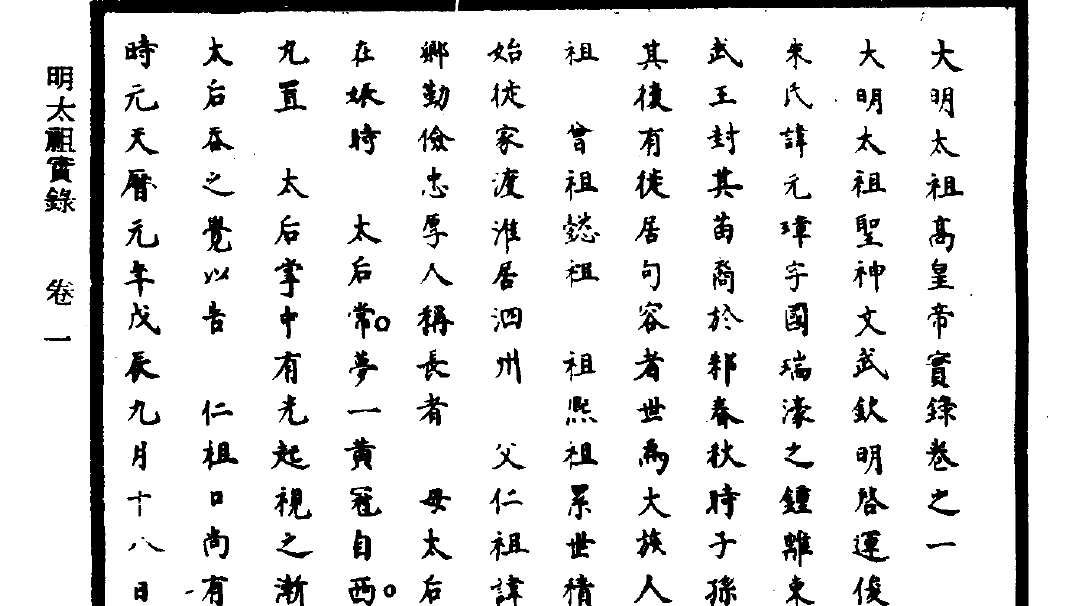 大明太祖高皇帝實錄卷之一
大明太祖聖神文武欽明啓運俊
朱氏諱元璋字國瑞濠之鍾離東
武王封其苗裔於邾春秋時子孫
其後有徙居句容者世爲大族人
祖 曾祖懿祖 祖熙祖累世積
始徙家渡淮居泗州 父仁祖諱
鄉勤儉忠厚人稱長者 母太后
在娠時 太后常夢一黃冠自西
丸置 太后掌中有光起視之漸
太后吞之覺以告 仁祖口尚有
時元天曆元年戊辰九月十八日
明太祖實錄 卷一